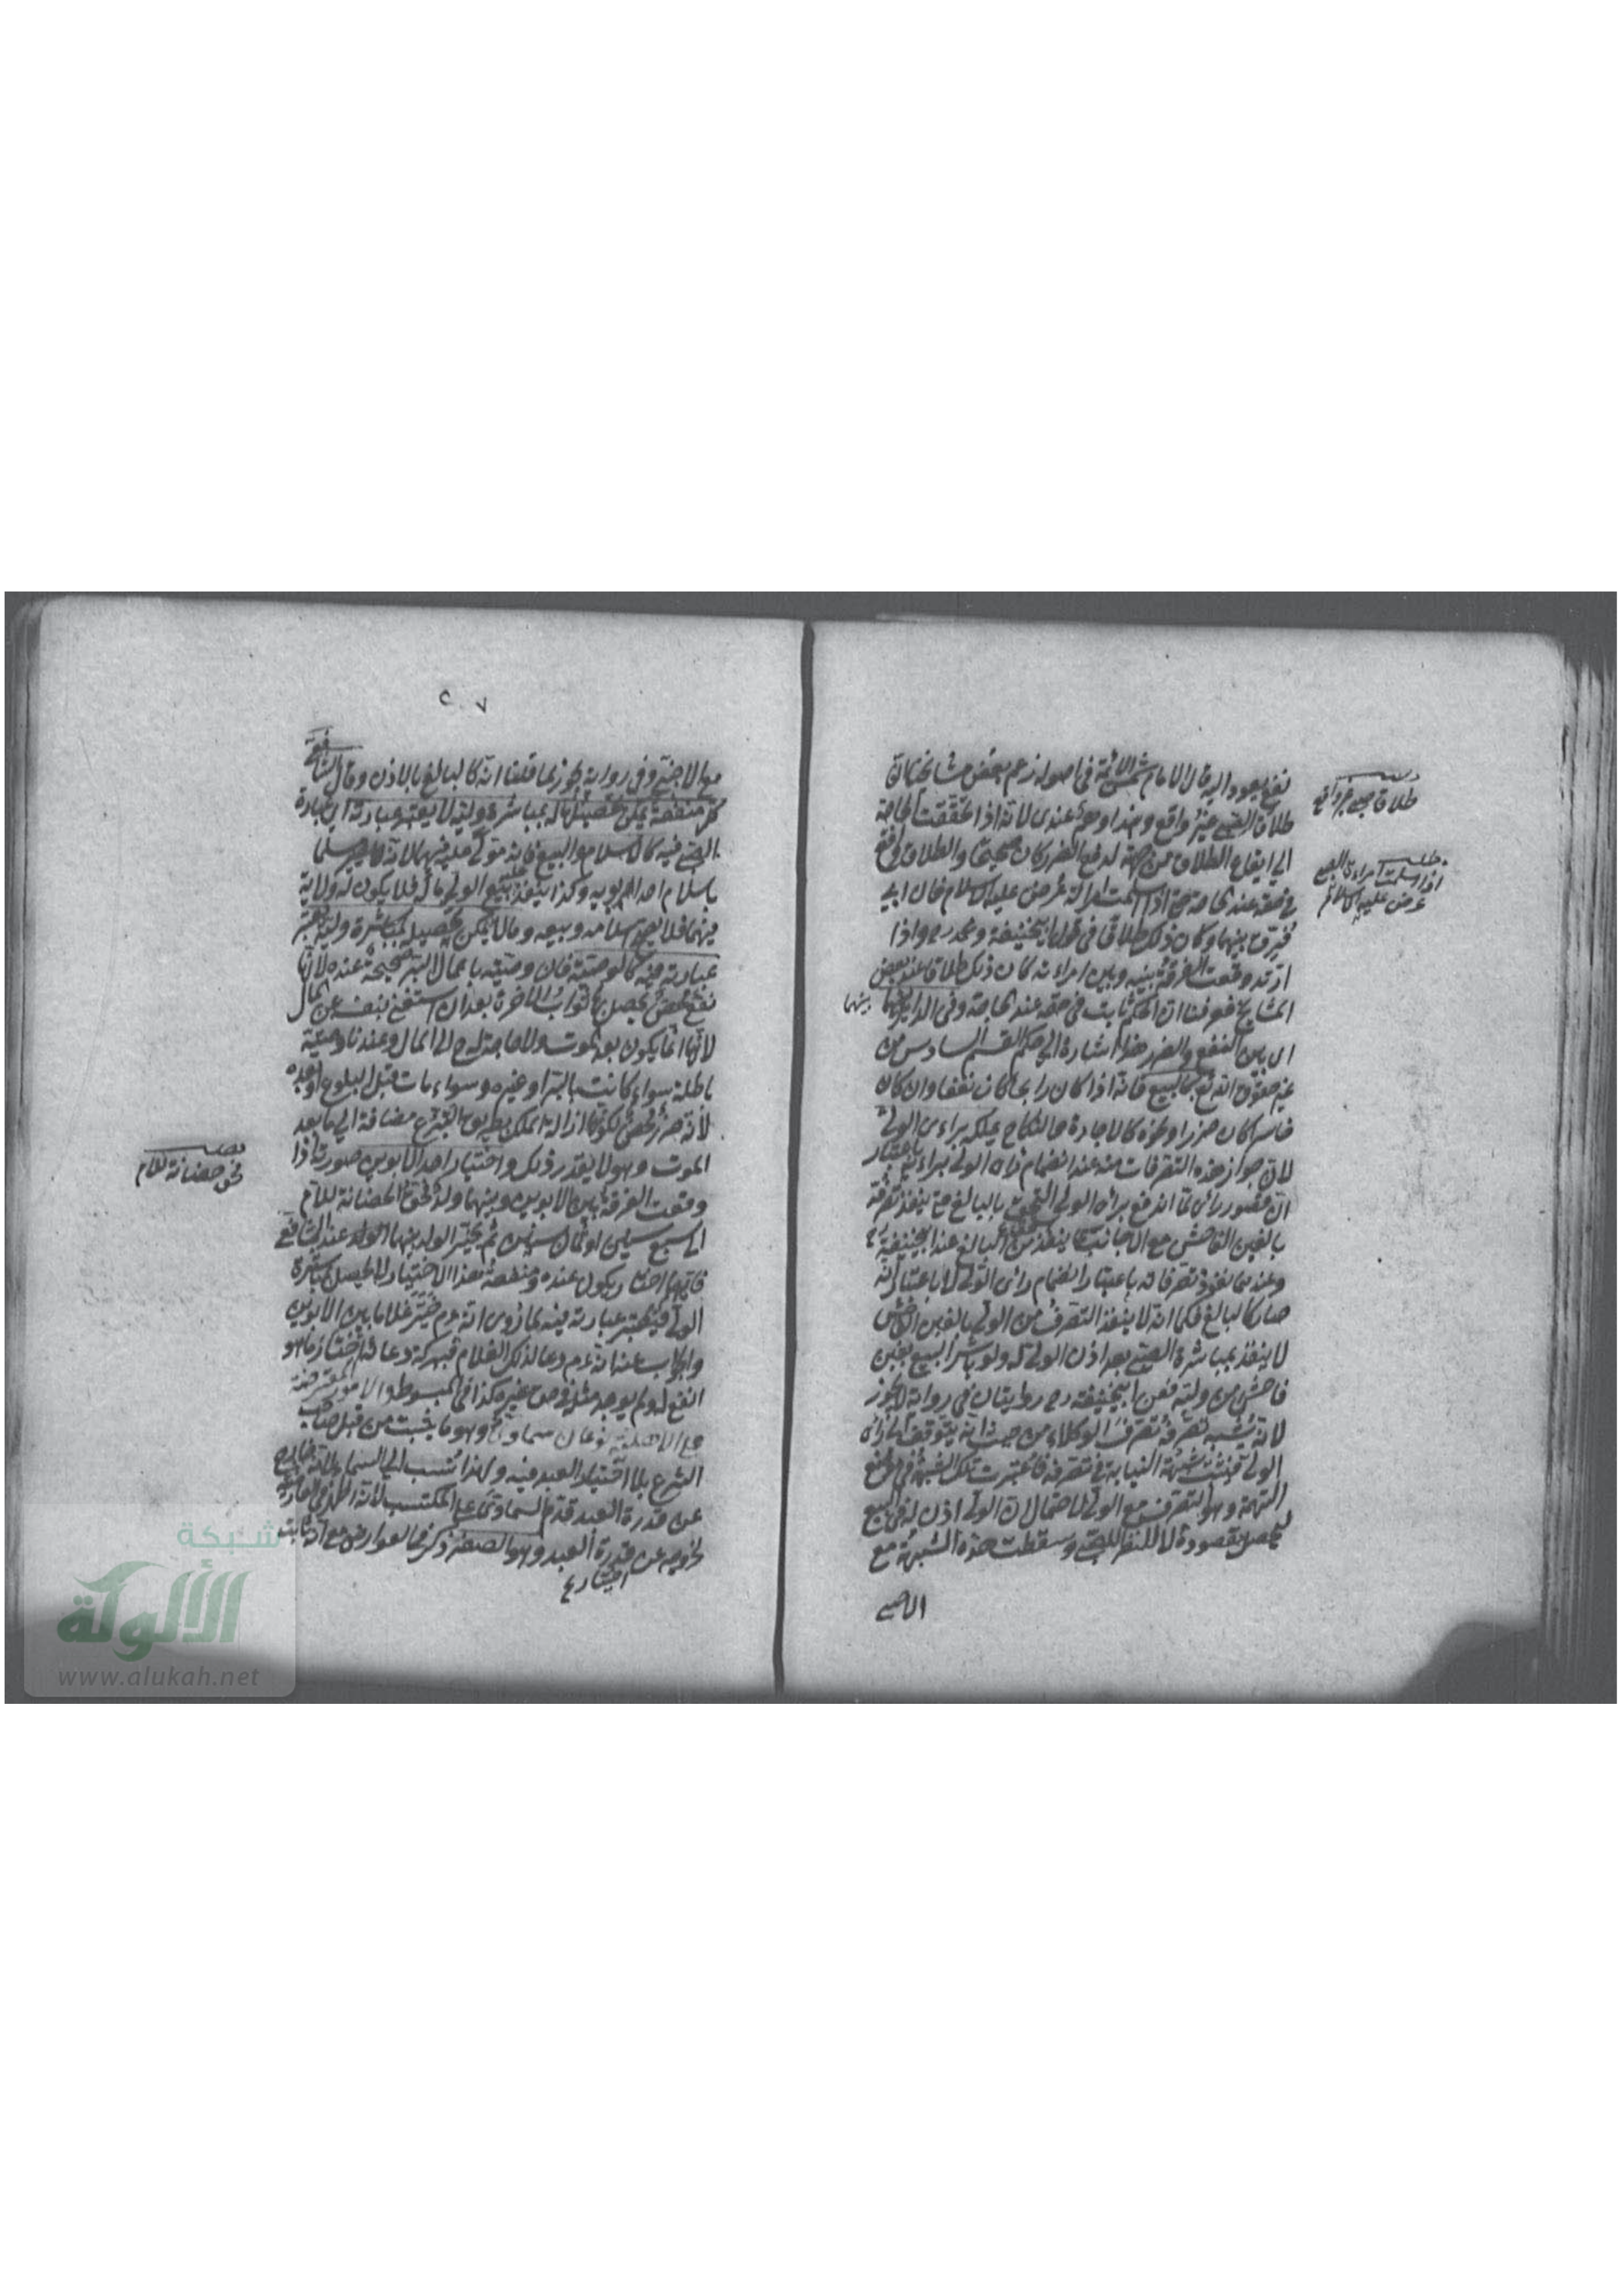 نفع يعود اليه قال الامام شمس الائمة في اصوله زعم بعض مشائخنا ان
طلاق الصبي غير واقع وهذا وهم عندي لانه اذا تحققت الحاجة
الي ايقاع الطلاق من جهته لدفع الضرر كان صحيحا والطلاق واقع
في حقه عند الحاجة حتى اذا اسلمت امراته عرض عليه الاسلام فان ابي
فرق بينهما وكان ذلك طلاقا في قول ابيحنيفة ومحمد رح واذا
ارتد وقعت الفرقة بينه وبين امراته كان ذلك طلاقا عند بعض
المشايخ فعرفنا ان الحكم ثابت في حقه عند الحاجة وفي الداير بينهما
بينهما
اي بين النفع والضرر هذا اشارة الي حكم القسم السادس من
غير حقوق الله تع كالبيع فانه اذا كان رابحا كان نفعا وان كان
خاسرا كان ضررا ونحوه كالاجارة والنكاح يملكه براءي الولي
لان جواز هذه التصرفات منه عند انضمام راي الولي براءيه باعتبار
ان قصور رائه لما اندفع براي الولي التحق بالبالغ حتى ينفذ تصرفه
بالغبن الفاحش مع الاجانب كما ينفذ من البالغ عند ابيحنيفة رح
وعندهما نفوذ تصرفاته باعتبار انضمام رائ الولي لا باعتبار انه
صار كالبالغ فكما انه لا ينفذ التصرف من الولي بالغبن الفاحش
لا ينفذ بمباشرة الصبي بعد اذن الولي له ولو باشر البيع بغبن
فاحش من وليه فعن ابيحنيفة رح روايتان في رواية لا يجوز
لانه يشبه تصرفه تصرف الوكلاء من حيث انه يتوقف الي رائ
الولي فيثبت شبهة النيابة في تصرفه فاعتبرت تلك الشبهة في موضع
التهمة وهو التصرف مع الولي لاحتمال ان الولي اذن له في البيع
ليحصل مقصوده لا للنظر للصبي وسقطت هذه الشبهة مع
الاجنبي
طلاق صبي غير واقع
مطلب
اذا اسلمت امراءة الصبي
عرض عليه الاسلام
٢٠٧
مع الاجنبي وفي رواية يجوز لما قلنا انه كالبالغ بالاذن وقال الشافعي
كل منفعة يمكن تحصيلها له بمباشرة وليه لا يعتبر عبارته اي عبارة
الصبي فيه كالاسلام والبيع فانه مولي عليه فيهما لانه يصير مسلما
باسلام احد ابويه وكذا ينفذ بيع الولي ماله فلا يكون له ولاية
فيهما فلا يصح اسلامه وبيعه وما لا يمكن تحصيله بمباشرة وليه يعتبر
عبارته فيه كالوصية فان وصيته باعمال البر صحيحة عنده لانها
نفع محض يحصل بها ثواب الاخرة بعد ان استغنى بنفسه عن المال
لانها انما يكون بعد الموت ولا حاجة له ح الي المال وعندنا وصيته
باطلة سواء كانت بالبر او غيره وسواء مات قبل البلوغ او بعده
لانه ضرر محض لكونها ازالة الملك بطريق التبرع مضافة الي ما بعد
الموت وهو لا يقدر ذلك واختيار احد الابوين صورته اذا
وقعت الفرقة بين الابوين وبينهما ولد فحق الحضانة للام
الي سبع سنين او ثمان سنين ثم يخير الولد بينهما عند الشافعي
فايهما اختار يكون عنده ومنفعة هذا الاختيار لا يحصل بمباشرة
الولي فيعتبر عبارته فيه لما روي انه عم خير غلاما بين الابوين
والجواب عنه انه عم دعا لذلك الغلام فببركة دعائه اختار ما هو
انفع له ولم يوجد مثله في حق غيره كذا في المبسوط والامور المعترضة
علي الاهلية نوعان سماوي وهو ما يثبت من قبل صاحب
الشرع بلا اختيار العبد فيه ولهذا نسب الي السماء لانه خارج
عن قدرة العبد قدم السماوي علي المكتسب لانه اظهر في العارضية
لخروجه عن قدرة العبد وهو الصغر ذكر في العوارض مع انه ثابت
اختياره
حق حضانة للام
شبكة
الألوكة
www.alukah.net